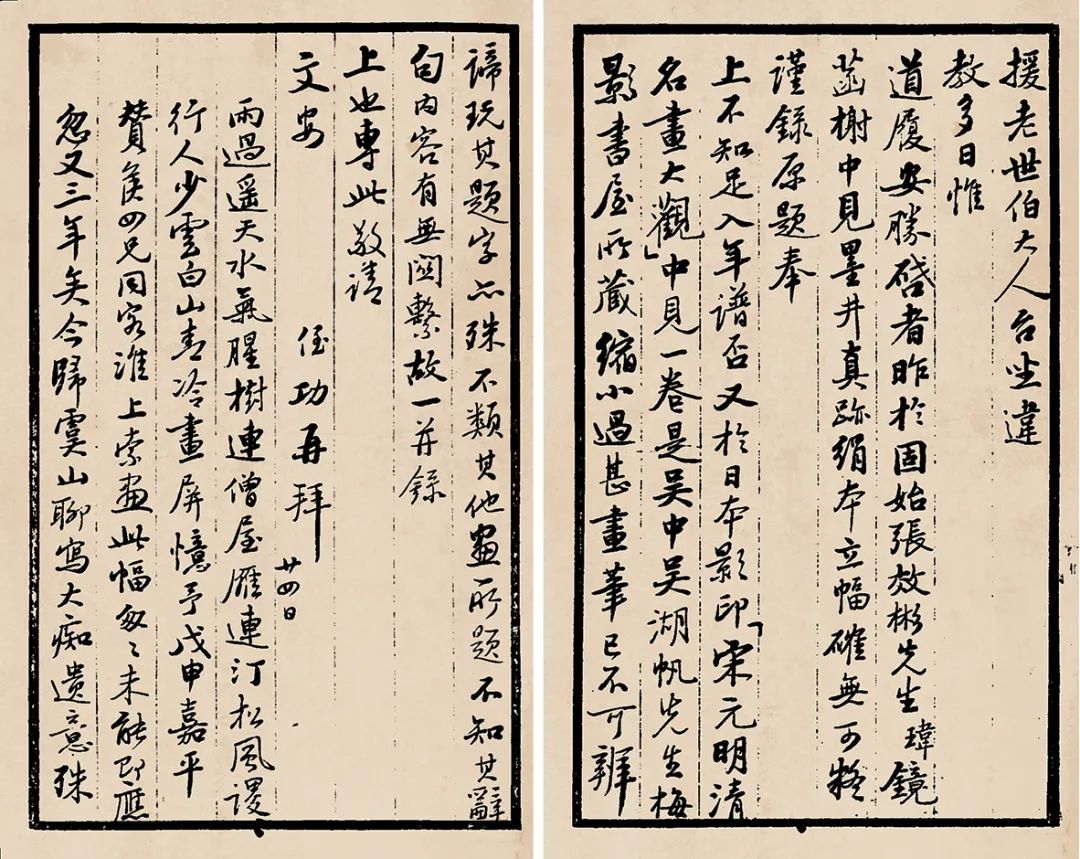 援老世伯大人台坐違
教多日惟
道履安勝啓者昨於固始張效彬先生瑋鏡
菡榭中見墨井真跡絹本立幅確無可疑
謹錄原題奉
上不知足入年譜否又於日本影印「宋元明清
名畫大觀」中見一卷是吳中吳湖帆先生梅
影書屋所藏縮小過甚畫筆已不可辨
諦玩其題字亦殊不類其他畫所題不知其辭
句內容有無關繫故一并錄
上也專此敬請
文安
侄功再拜
廿四日
雨過遥天水氣腥樹連僧屋雁連汀松風謖
行人少雲白山青冷畫屏憶予戊申嘉平
贊侯四兄同客淮上索畫此幅匆〻未能即應
忽又三年矣今歸虞山聊寫大痴遺意殊